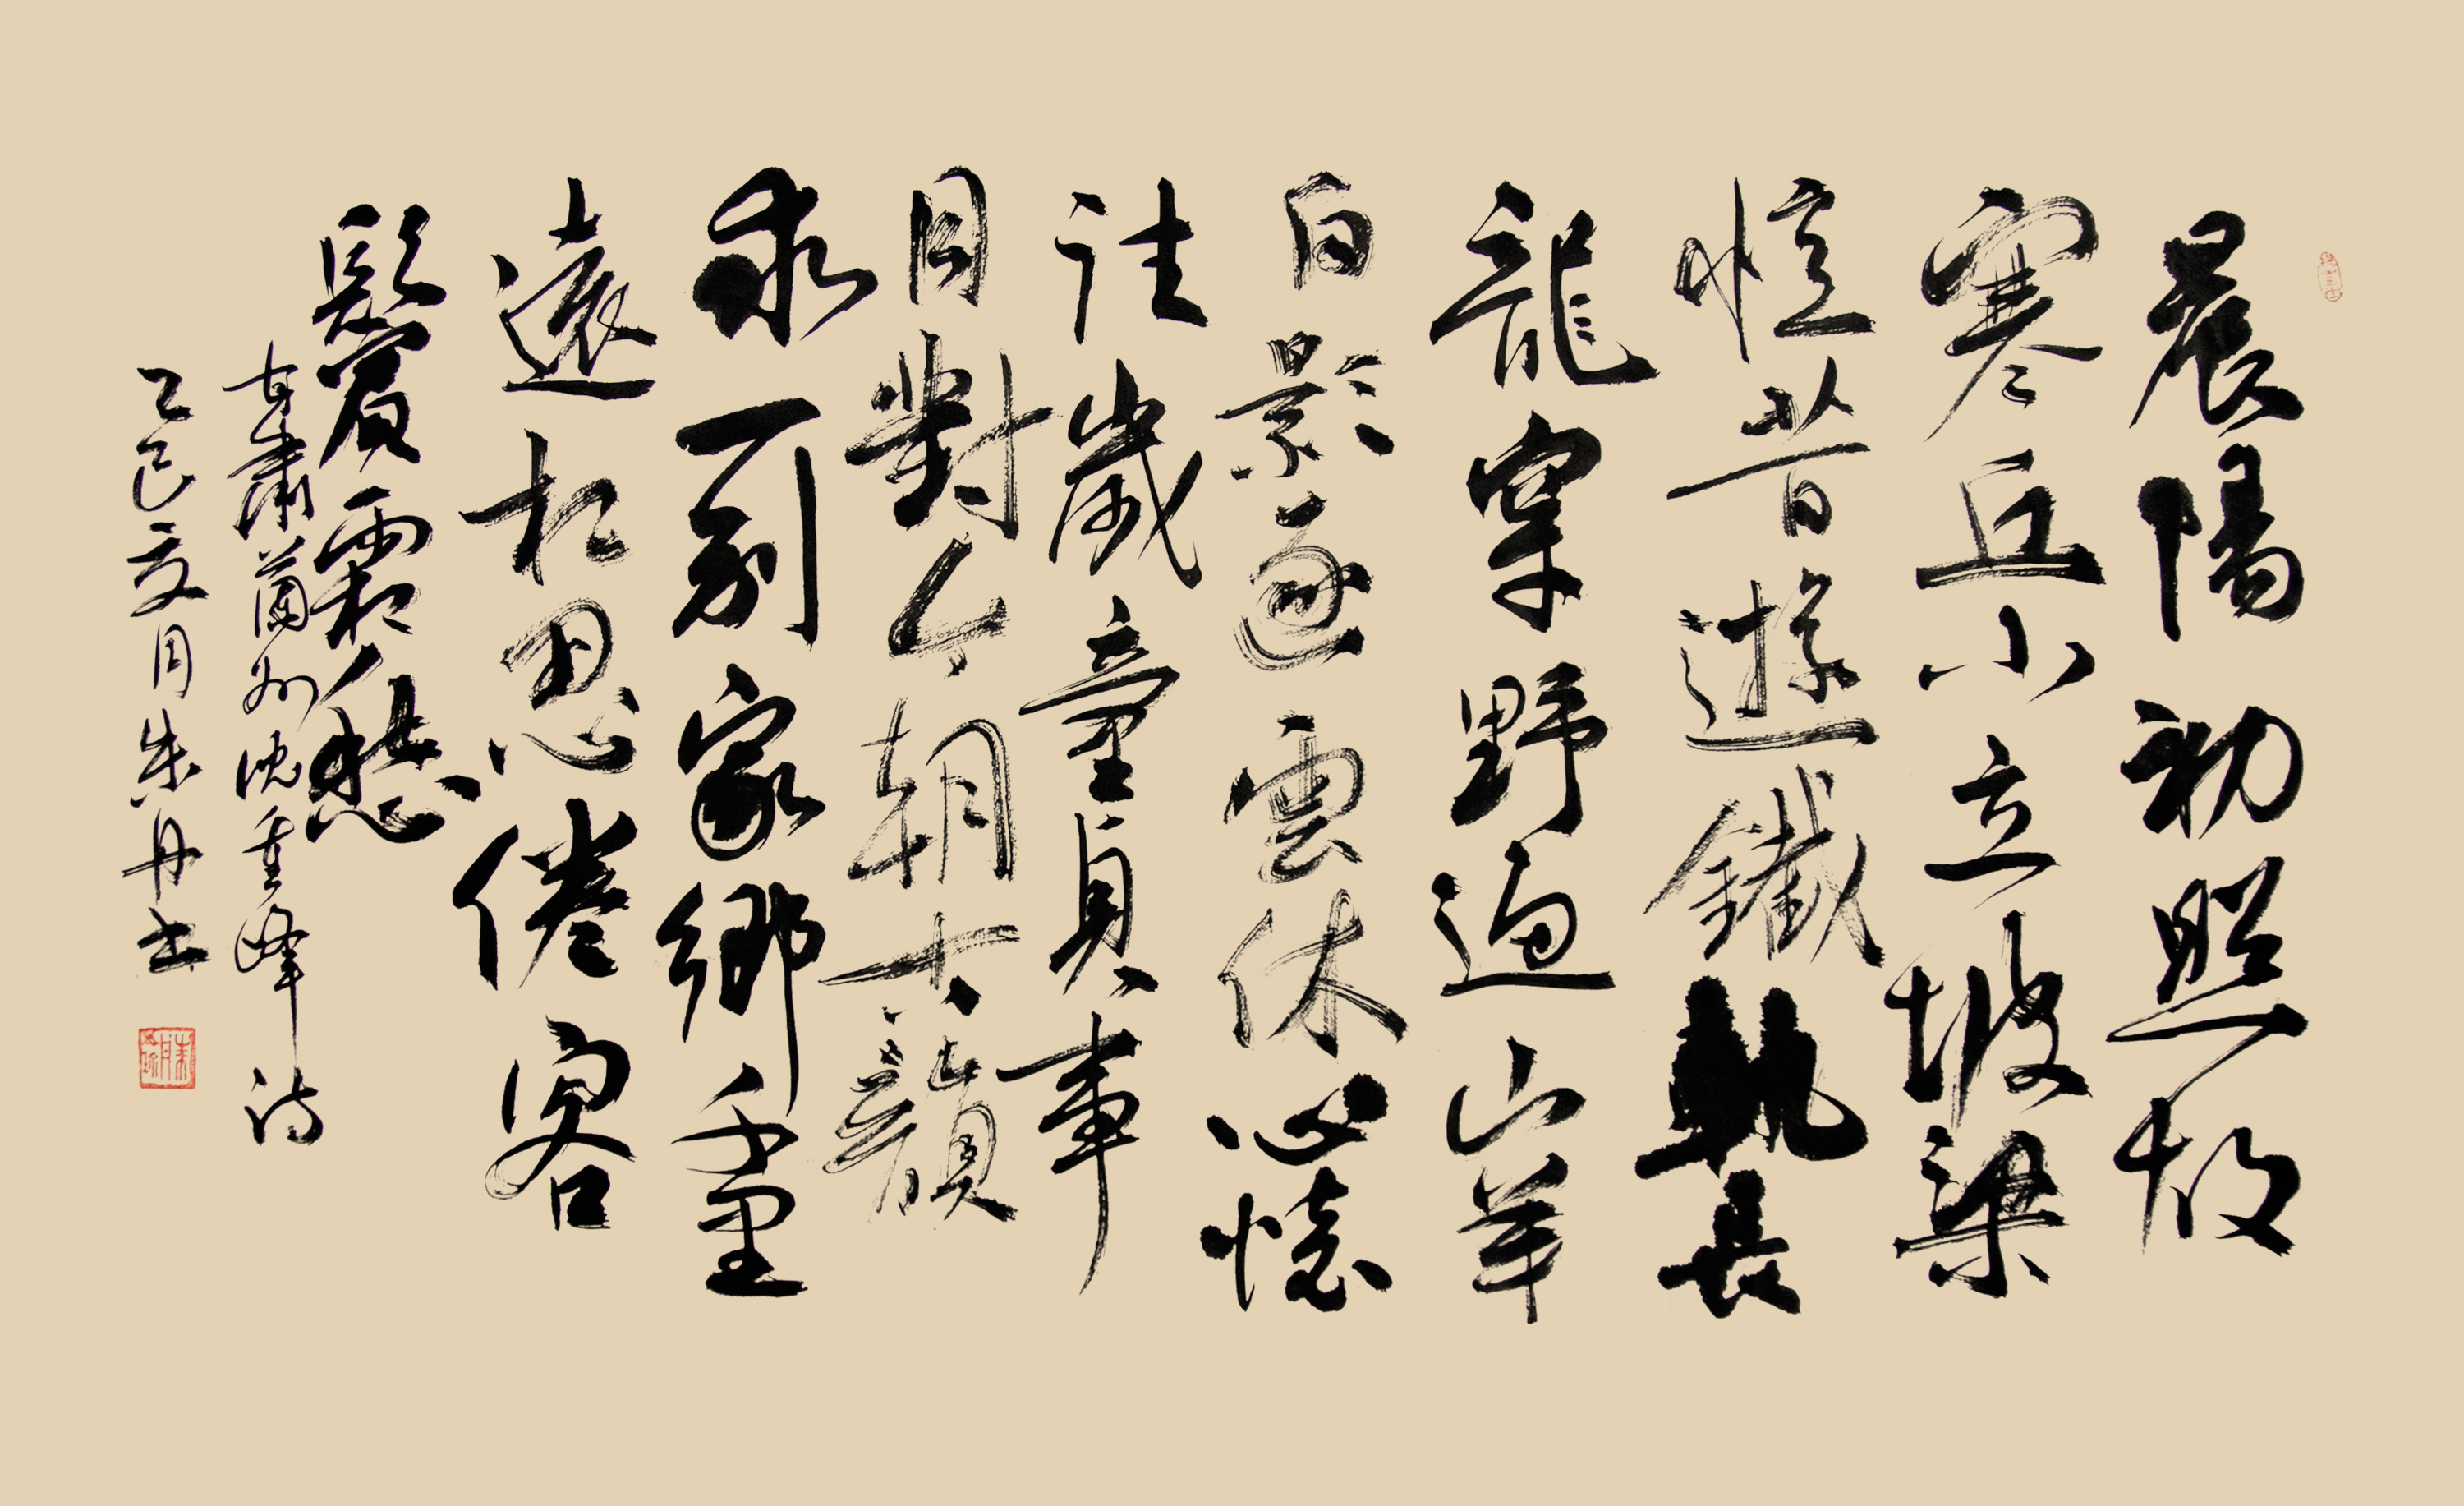 晨陽初照放
寒丘小立坡梁
憶昔遊鐵軌長
龍穿野過山羊
白影逐雲休心懷
往歲童真事
目對今朝天籟
秋一別家鄉千里
遠相思倦客
鬢霜愁
甘肅蘭州沈重峰詩
乙巳夏月朱丹書